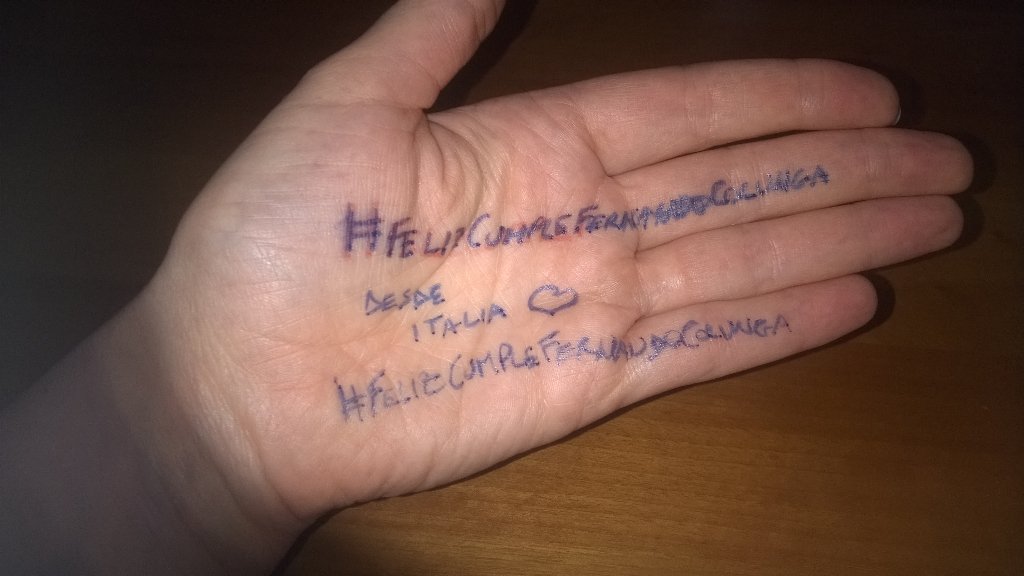 #FELIZCUMPLEFERNANDOCOLUNGA
DESDE
ITALIA
#FELIZCUMPLEFERNANDOCOLUNGA